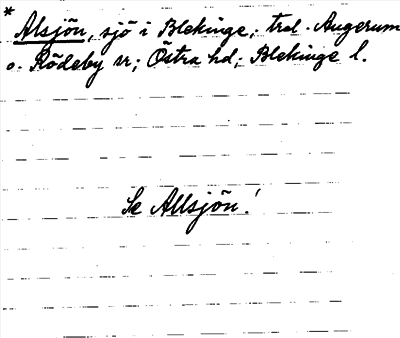 * Alsjön, sjö i Blekinge; trol. Augerum
o. Rödeby sr; Östra hd; Blekinge l.
Se Allsjön!